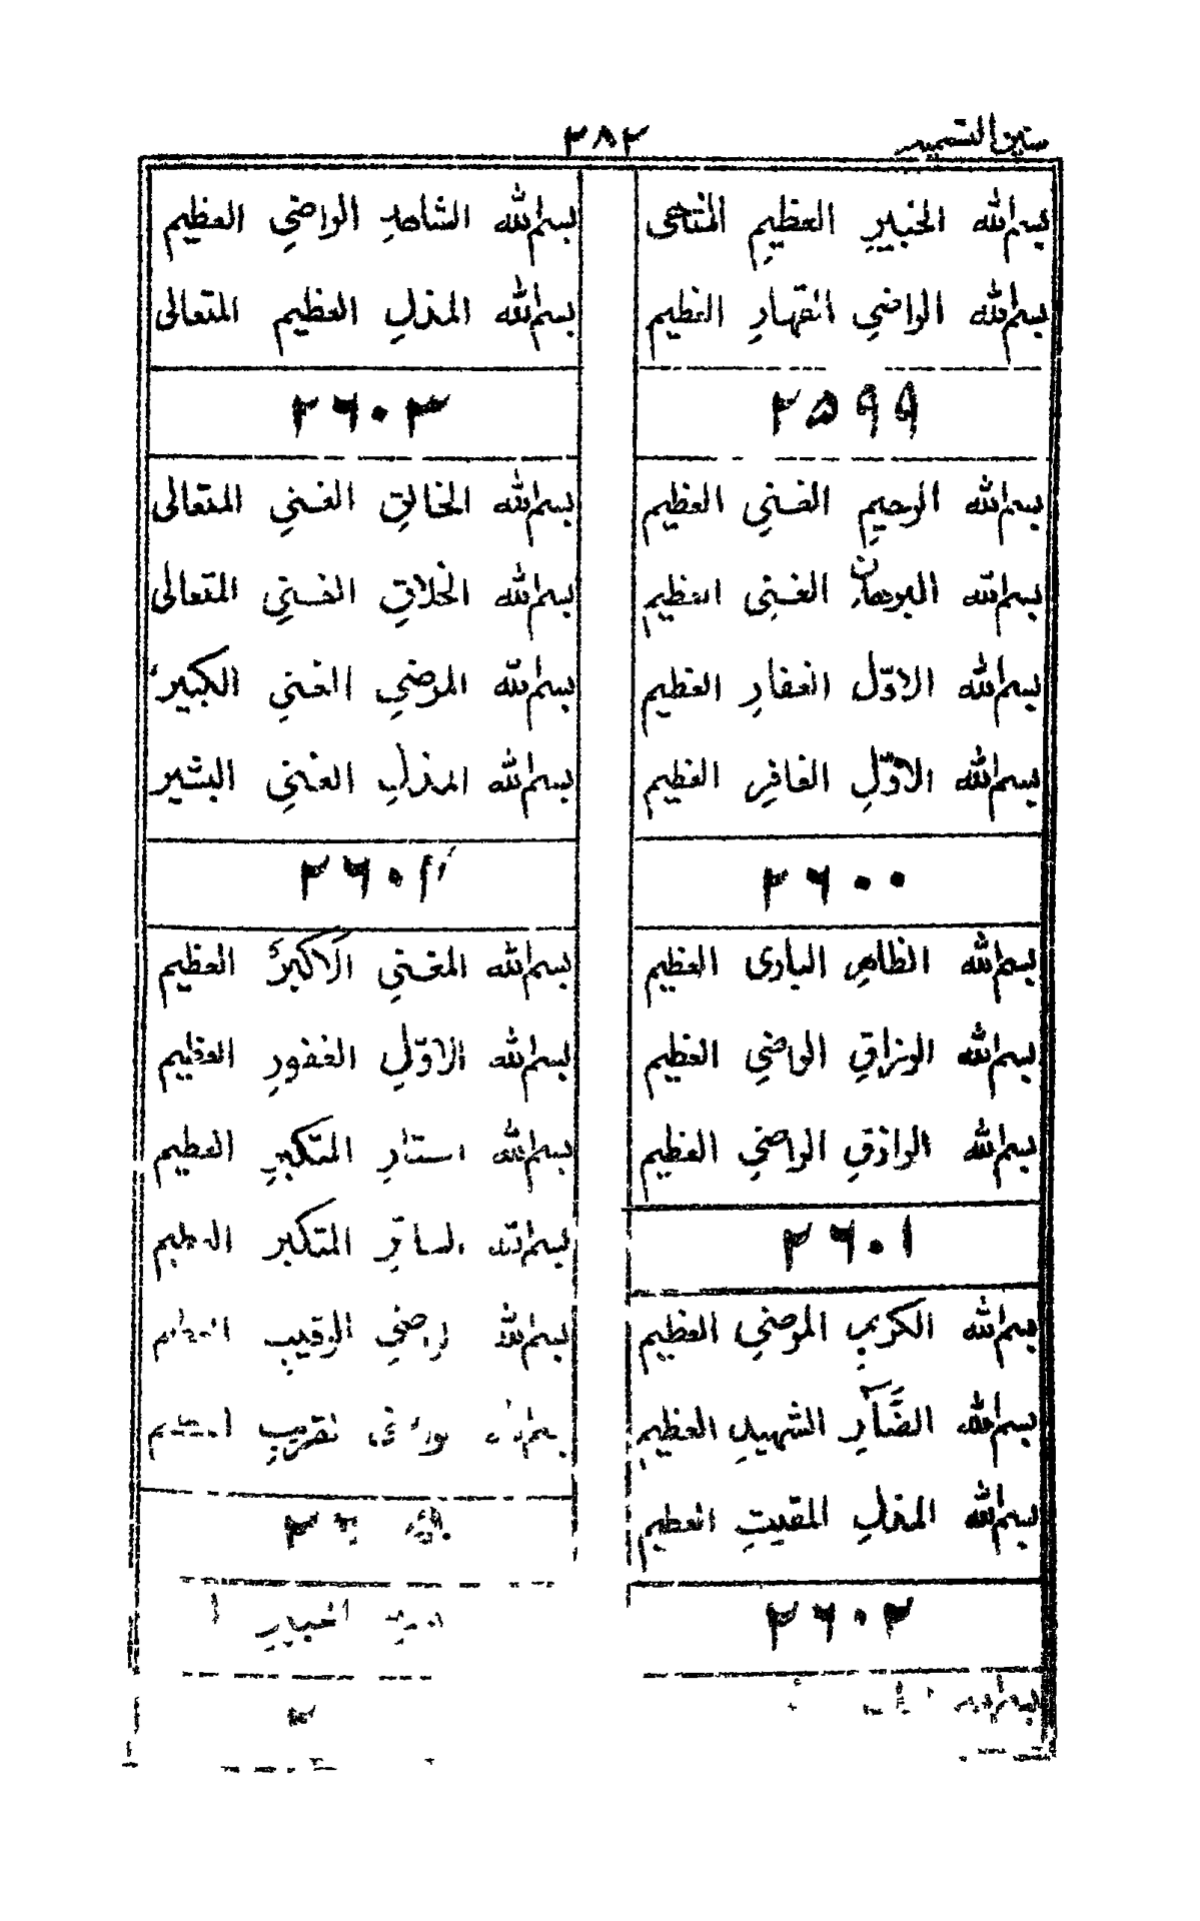 سنين التسميه
٢٨٢
بسم الله الخبير العظيمِ
بسم الله الواضي القهارِ العظيم
٢٥٩٩
بسم الله الرحيمِ الغني العظيم
بسم الله البرهان الغني العظيم
بسم الله الاوّل الغفارِ العظيم
بسم الله الاوّلِ الغافرِ العظيم
٢٦٠٠
بسم الله الظاهرِ البادى العظيم
بسم الله الرزاقِ الواضي العظيم
بسم الله الرازقِ الواضي العظيم
٢٦٠١
بسم الله الكريمِ المرضي العظيم
بسم الله الضَّآرِ الشهيدِ العظيمِ
بسم الله المذلِ المقيتِ العظيم
٢٦٠٢
بسم الله
بسم الله الشاهدِ الواضي العظيم
بسم الله المذلِ العظيم المتعالى
٢٦٠٣
بسم الله الخالقِ الغني المتعالى
بسم الله الخلاقِ الغني المتعالى
بسم الله المرضي الغني الكبير
بسم الله المذلِ الغني البشير
٢٦٠٤
بسم الله المغني الاكبر العظيم
بسم الله الاوّلِ الغفورِ العظيم
بسم الله ستارِ المتكبرِ العظيم
بسم الله الساترِ المتكبر العظيم
بسم الله راضي الرقيبِ العظيم
قريبِ
٢٦
الخبيرِ